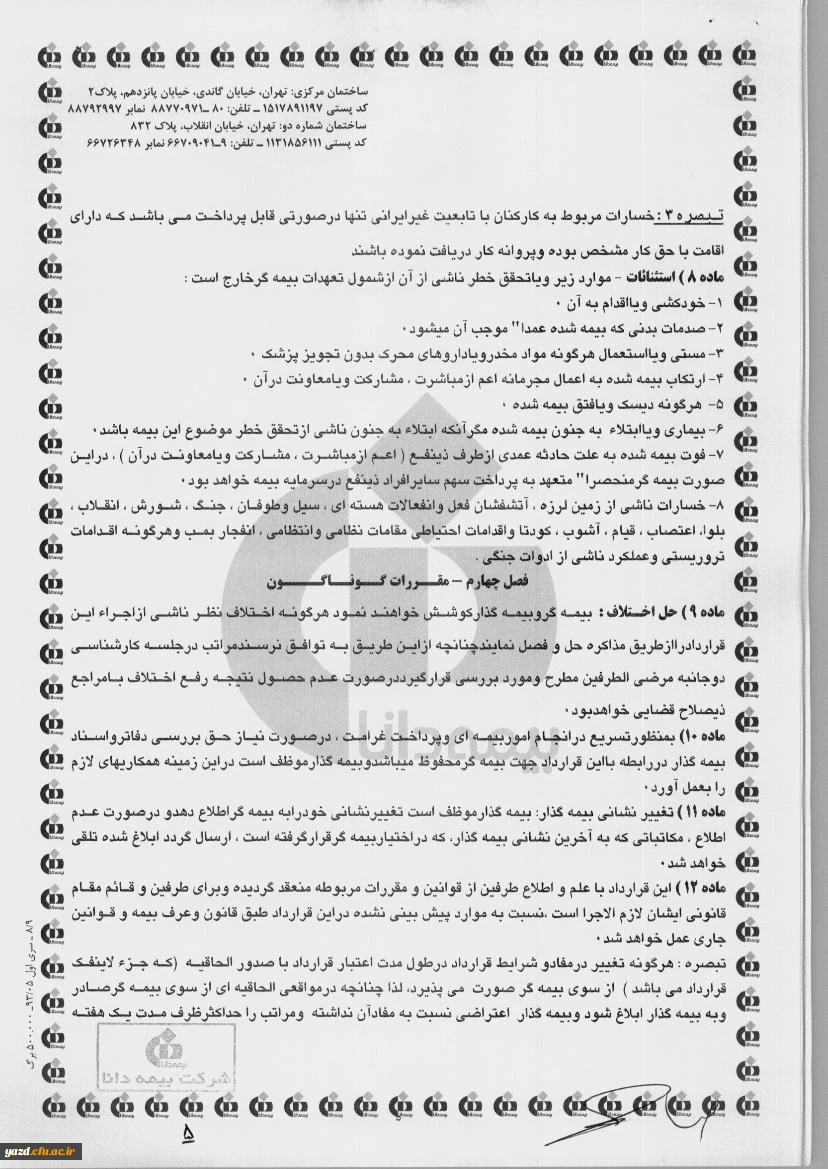 ساختمان مرکزی: تهران، خیابان گاندی، خیابان پانزدهم، پلاک۲
کد پستی ۱۵۱۷۸۹۱۱۹۷ ــ تلفن: ۸۰ ــ۸۸۷۷۰۹۷۱ نمابر ۸۸۷۹۲۹۹۷
ساختمان شماره دو: تهران، خیابان انقلاب، پلاک ۸۳۲
کد پستی ۱۱۳۱۸۵۶۱۱۱ ــ تلفن: ۹ــ۶۶۷۰۹۰۴۱ نمابر ۶۶۷۲۶۳۴۸
تبصره ۳ : خسارات مربوط به کارکنان با تابعیت غیرایرانی تنها درصورتی قابل پرداخت می باشد که دارای
اقامت با حق کار مشخص بوده وپروانه کار دریافت نموده باشند
ماده ۸ ) استثنائات - موارد زیر ویاتحقق خطر ناشی از آن ازشمول تعهدات بیمه گرخارج است :
۱- خودکشی ویااقدام به آن ۰
۲- صدمات بدنی که بیمه شده عمدا" موجب آن میشود۰
۳- مستی ویااستعمال هرگونه مواد مخدرویاداروهای محرک بدون تجویز پزشک ۰
۴- ارتکاب بیمه شده به اعمال مجرمانه اعم ازمباشرت ، مشارکت ویامعاونت درآن ۰
۵- هرگونه دیسک ویافتق بیمه شده ۰
۶- بیماری ویاابتلاء به جنون بیمه شده مگرآنکه ابتلاء به جنون ناشی ازتحقق خطر موضوع این بیمه باشد۰
۷- فوت بیمه شده به علت حادثه عمدی ازطرف ذینفع ( اعم ازمباشرت ، مشارکت ویامعاونت درآن ) ، دراین
صورت بیمه گرمنحصرا" متعهد به پرداخت سهم سایرافراد ذینفع درسرمایه بیمه خواهد بود۰
۸- خسارات ناشی از زمین لرزه ، آتشفشان فعل وانفعالات هسته ای ، سیل وطوفان ، جنگ ، شورش ، انقلاب ،
بلوا، اعتصاب ، قیام ، آشوب ، کودتا واقدامات احتیاطی مقامات نظامی وانتظامی ، انفجار بمب وهرگونه اقدامات
تروریستی وعملکرد ناشی از ادوات جنگی .
فصل چهارم – مقـــررات گـــونـــاگـــــون
ماده ۹ ) حل اختلاف : بیمه گروبیمه گذارکوشش خواهند نمود هرگونه اختلاف نظر ناشی ازاجراء این
قراردادراازطریق مذاکره حل و فصل نمایندچنانچه ازاین طریق به توافق نرسندمراتب درجلسه کارشناسی
دوجانبه مرضی الطرفین مطرح ومورد بررسی قرارگیرددرصورت عدم حصول نتیجه رفع اختلاف بامراجع
ذیصلاح قضایی خواهدبود۰
ماده ۱۰) بمنظورتسریع درانجام اموربیمه ای وپرداخت غرامت ، درصورت نیاز حق بررسی دفاترواسناد
بیمه گذار دررابطه بااین قرارداد جهت بیمه گرمحفوظ میباشدوبیمه گذارموظف است دراین زمینه همکاریهای لازم
را بعمل آورد۰
ماده ۱۱ ) تغییر نشانی بیمه گذار: بیمه گذارموظف است تغییرنشانی خودرابه بیمه گراطلاع دهدو درصورت عدم
اطلاع ، مکاتباتی که به آخرین نشانی بیمه گذار، که دراختیاربیمه گرقرارگرفته است ، ارسال گردد ابلاغ شده تلقی
خواهد شد۰
ماده ۱۲ ) این قرارداد با علم و اطلاع طرفین از قوانین و مقررات مربوطه منعقد گردیده وبرای طرفین و قائم مقام
قانونی ایشان لازم الاجرا است ،نسبت به موارد پیش بینی نشده دراین قرارداد طبق قانون وعرف بیمه و قوانین
جاری عمل خواهد شد۰
تبصره : هرگونه تغییر درمفادو شرایط قرارداد درطول مدت اعتبار قرارداد با صدور الحاقیه (که جزء لاینفک
قرارداد می باشد ) از سوی بیمه گر صورت می پذیرد، لذا چنانچه درمواقعی الحاقیه ای از سوی بیمه گرصادر
وبه بیمه گذار ابلاغ شود وبیمه گذار اعتراضی نسبت به مفادآن نداشته ومراتب را حداکثرظرف مدت یک هفته
بیمه دانا
شرکت بیمه دانا
۸/۹ ــ سری اول ۹۳/۰۵ــ ۵۰۰،۰۰۰ برگ
5
۵
yazd.cfu.ac.ir